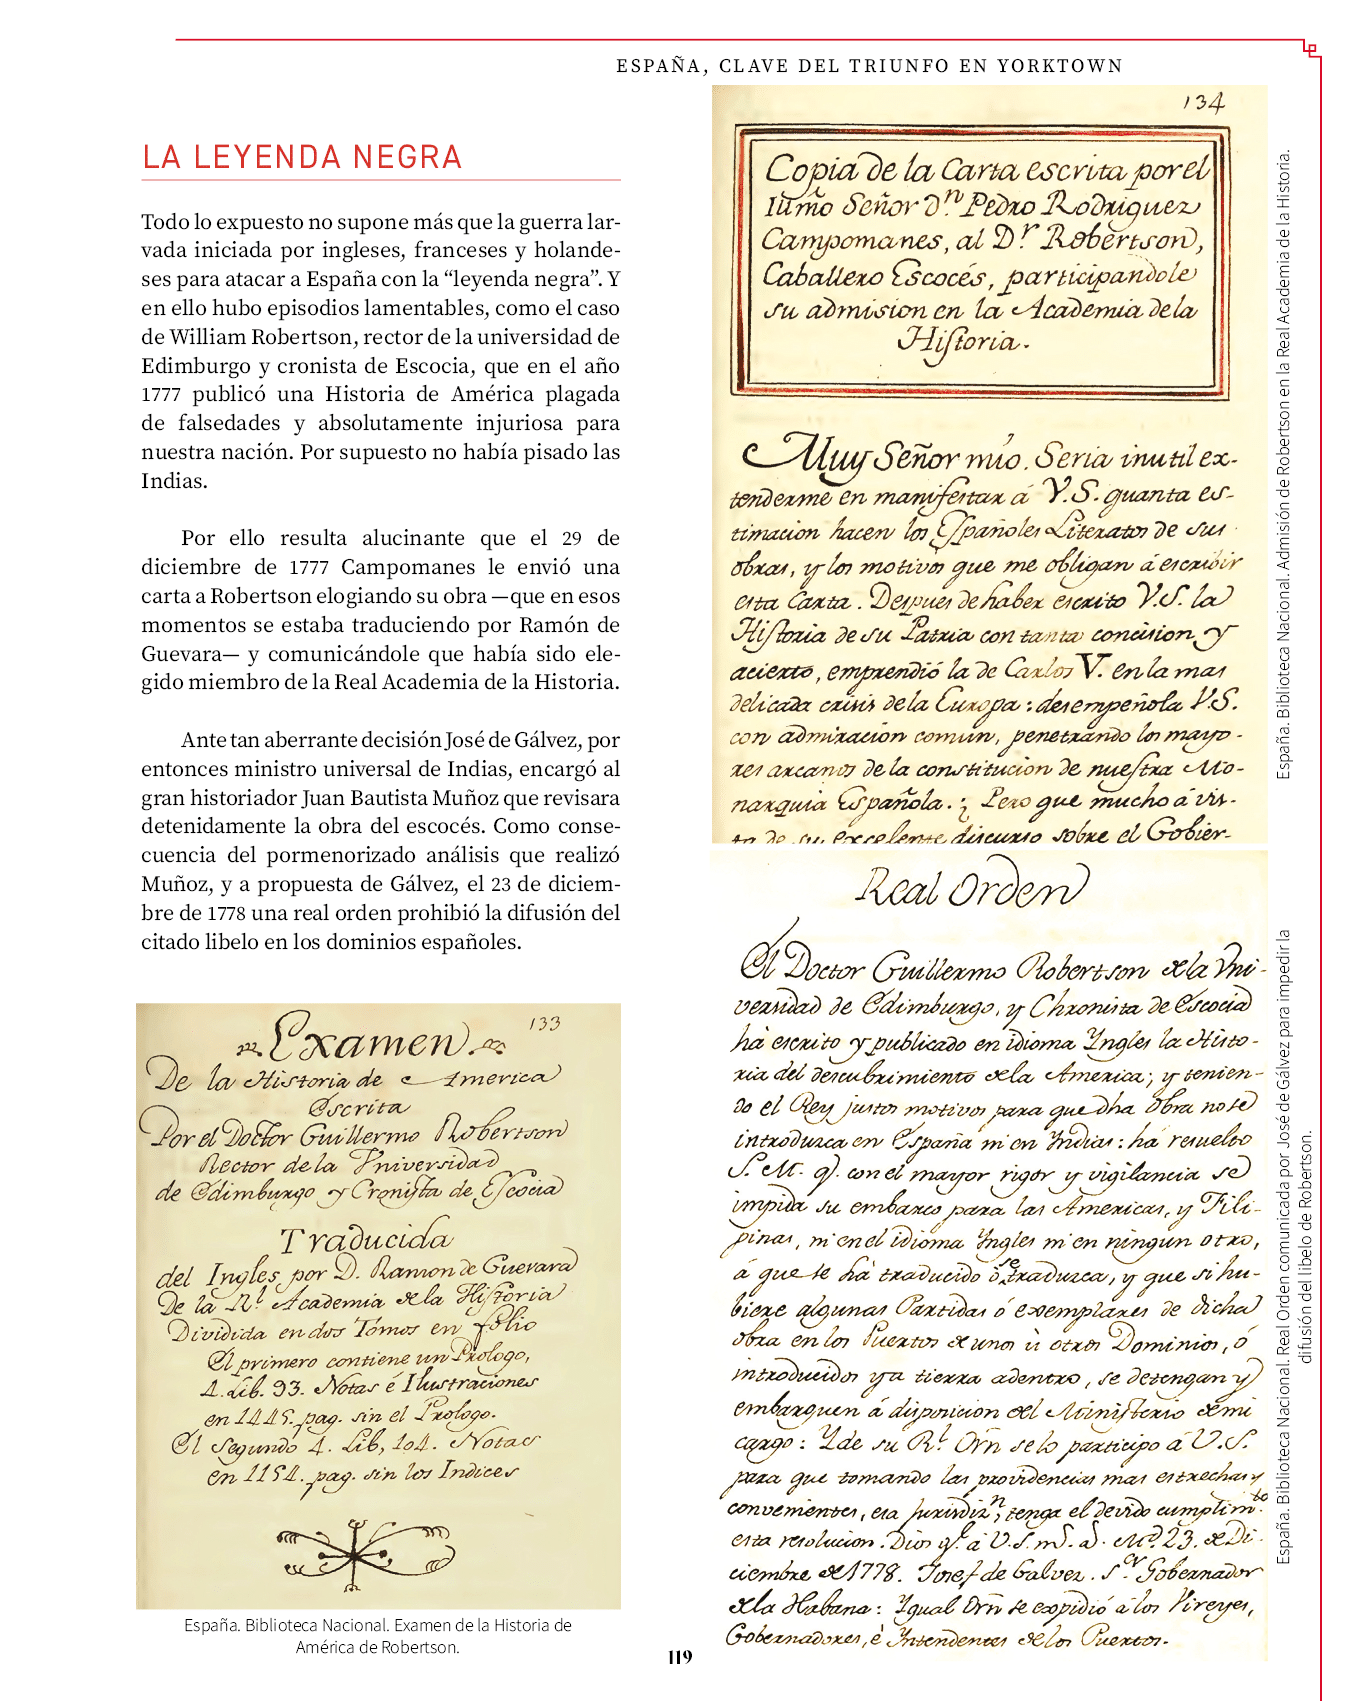 ESPAÑA, CLAVE DEL TRIUNFO EN YORKTOWN
LA LEYENDA NEGRA
Todo lo expuesto no supone más que la guerra lar-
vada iniciada por ingleses, franceses y holande-
ses para atacar a España con la “leyenda negra”. Y
en ello hubo episodios lamentables, como el caso
de William Robertson, rector de la universidad de
Edimburgo y cronista de Escocia, que en el año
1777 publicó una Historia de América plagada
de falsedades y absolutamente injuriosa para
nuestra nación. Por supuesto no había pisado las
Indias.
Por ello resulta alucinante que el 29 de
diciembre de 1777 Campomanes le envió una
carta a Robertson elogiando su obra —que en esos
momentos se estaba traduciendo por Ramón de
Guevara— y comunicándole que había sido ele-
gido miembro de la Real Academia de la Historia.
Ante tan aberrante decisión José de Gálvez, por
entonces ministro universal de Indias, encargó al
gran historiador Juan Bautista Muñoz que revisara
detenidamente la obra del escocés. Como conse-
cuencia del pormenorizado análisis que realizó
Muñoz, y a propuesta de Gálvez, el 23 de diciem-
bre de 1778 una real orden prohibió la difusión del
citado libelo en los dominios españoles.
133
Examen
De la Historia de America
Escrita
Por el Doctor Guillermo Robertson
Rector de la Vniversidad
de Edimburgo y Cronista de Escocia
Traducida
del Ingles por D. Ramon de Guevara
De la Rl. Academia de la Historia
Dividida en dos Tomos en folio
El primero contiene un Prologo,
4. Lib. 93. Notas é Ilustraciones
en 1445. pag. sin el Prologo.
El Segundo 4. Lib, 104. Notas
en 1154. pag. sin los Indices
España. Biblioteca Nacional. Examen de la Historia de
América de Robertson.
134
Copia de la Carta escrita por el
Illmo Señor Dn. Pedro Rodriguez
Campomanes, al Dr. Robertson,
Caballero Escocés, participandole
su admision en la Academia de la
Historia.
Muy Señor mio. Seria inutil ex-
tenderme en manifestar á V.S. quanta es-
timacion hacen los Españoles Literatos de sus
obras, y los motivos que me obligan á escribir
esta Carta. Despues de haber escrito V.S. la
Historia de su Patria con tanta concision y
acierto, emprendió la de Carlos V. en la mas
delicada crisis de la Europa: desempeñola V.S.
con admiracion comun, penetrando los mayo-
res arcanos de la constitucion de nuestra Mo-
narquia Española. ¿Pero que mucho á vis-
ta de su excelente discurso sobre el Gobier-
España. Biblioteca Nacional. Admisión de Robertson en la Real Academia de la Historia.
Real Orden
El Doctor Guillermo Robertson de la Vni-
versidad de Edimburgo, y Chronista de Escocia
há escrito y publicado en idioma Yngles la Histo-
ria del descubrimiento de la America; y tenien-
do el Rey justos motivos para que dha obra no se
introduzca en España ni en Yndias: há resuelto
S. M. q. con el mayor rigor y vigilancia se
impida su embarco para las Americas, y Fili-
pinas, ni en el idioma Yngles ni en ningun otro,
á que se há traducido ó se traduzca, y que si hu-
biere algunas Partidas ó exemplares de dicha
obra en los Puertos de unos ù otros Dominios, ó
introducidos ya tierra adentro, se detengan y
embarguen á disposicion del Ministerio de mi
cargo: Y de su Rl. Orn se lo participo á V.S.
para que tomando las providencias mas estrechas y
convenientes, esa Jurisdizn, tenga el devido cumplimto.
esta resolucion. Dios ge. á V.S. ms. as. Md. 23. de Di-
ciembre de 1778. Josef de Galvez. Sor Gobernador
de la Habana: Ygual Orn se expidió á los Vireyes,
Gobernadores, è Yntendentes de los Puertos.
España. Biblioteca Nacional. Real Orden comunicada por José de Gálvez para impedir la
difusión del libelo de Robertson.
119